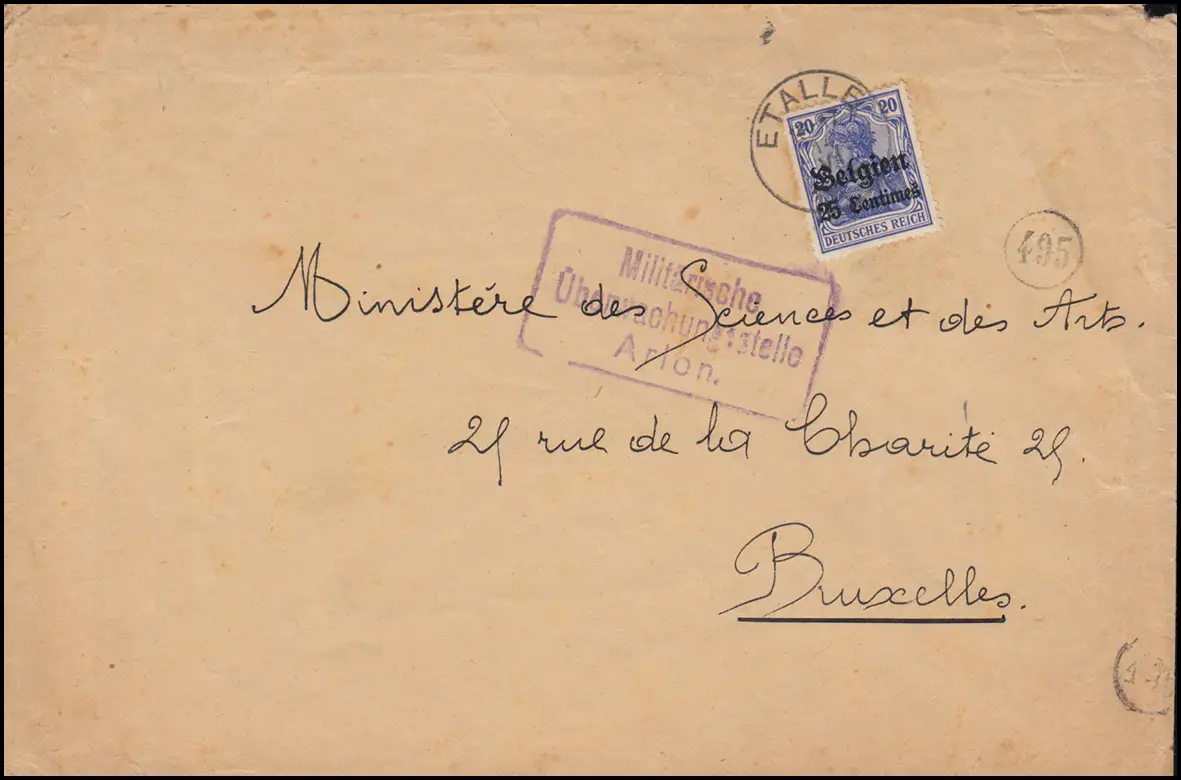 ETALLE
20 20
Belgien
25 Centimes
DEUTSCHES REICH
495
Militärische
Überwachungsstelle
Arlon.
Ministère des Sciences et des Arts.
25 rue de la Charité 25.
Bruxelles.